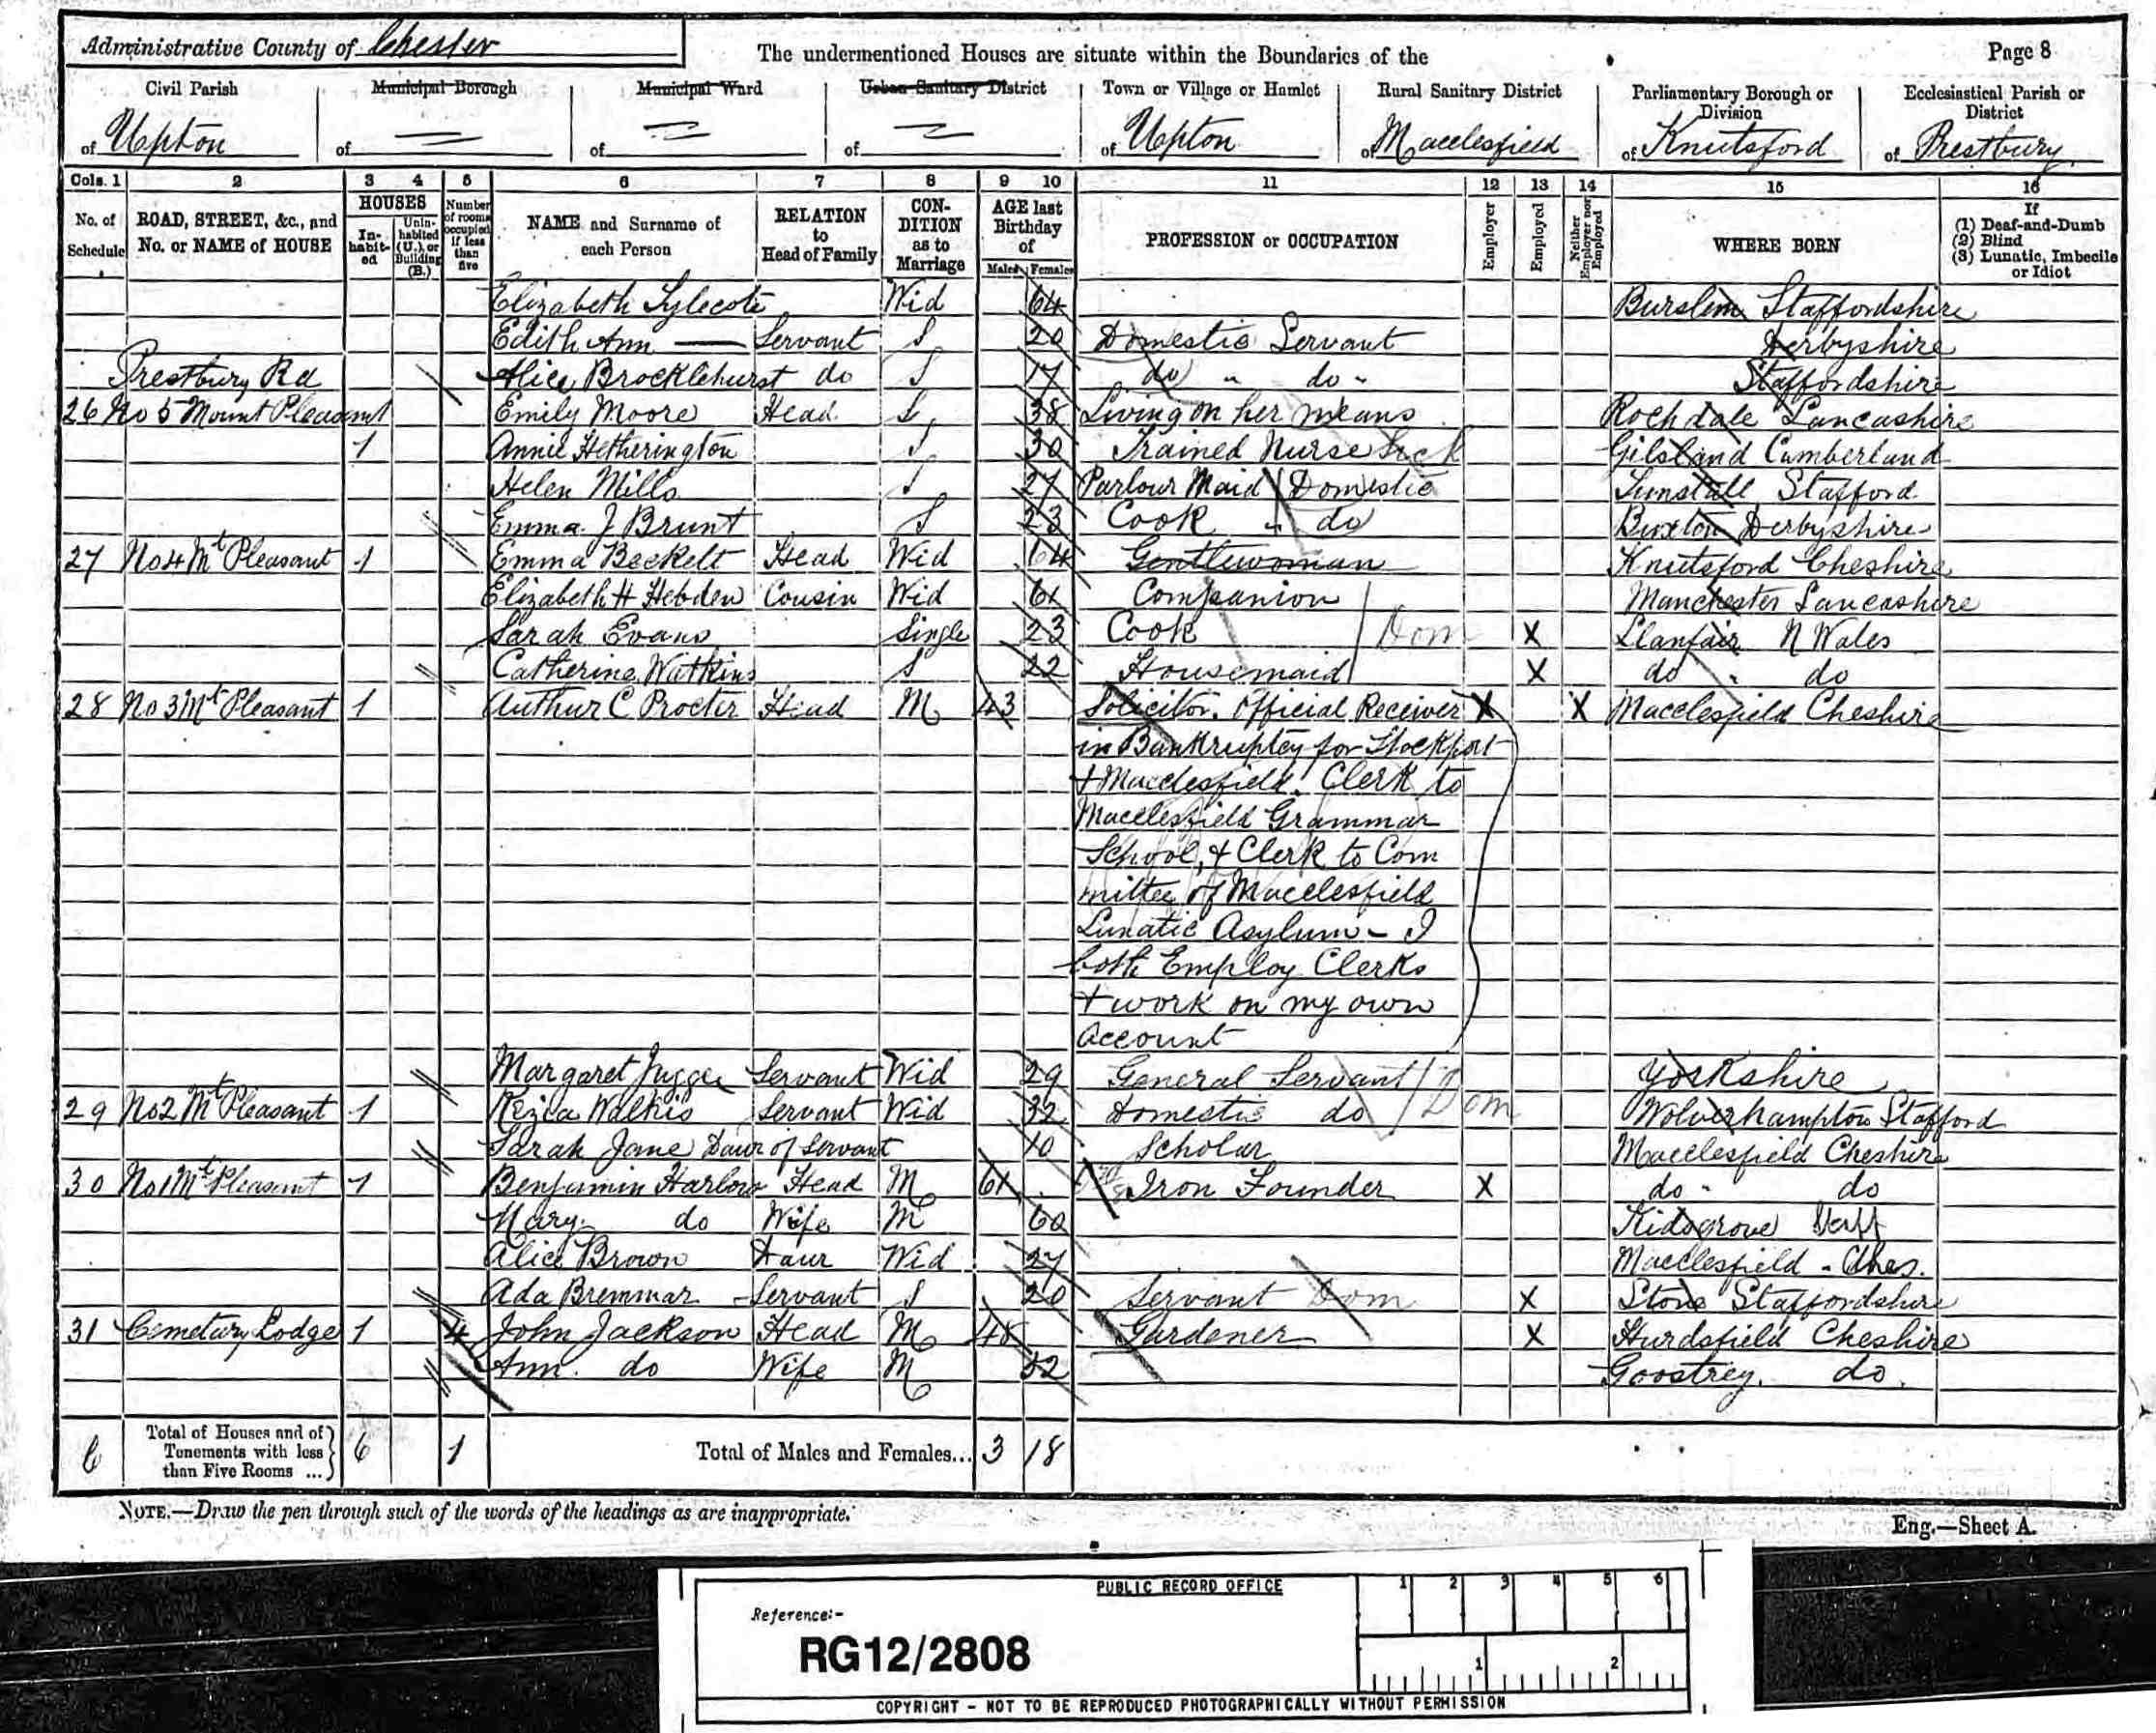 Administrative County of Chester
The undermentioned Houses are situate within the Boundaries of the
Page 8
Civil Parish
of Upton
Municipal Borough
of
Municipal Ward
of
Urban Sanitary District
of
Town or Village or Hamlet
of Upton
Rural Sanitary District
of Macclesfield
Parliamentary Borough or Division
of Knutsford
Ecclesiastical Parish or District
of Prestbury
Cols. 1 2 3 4 5 6 7 8 9 10 11 12 13 14 15 16
No. of Schedule
ROAD, STREET, &c., and No. or NAME of HOUSE
HOUSES
In-habit-ed
Unin-habited (U.), or Building (B.)
Number of rooms occupied if less than five
NAME and Surname of each Person
RELATION to Head of Family
CON-DITION as to Marriage
AGE last Birthday of
Males Females
PROFESSION or OCCUPATION
Employer
Employed
Neither Employer nor Employed
WHERE BORN
If
(1) Deaf-and-Dumb
(2) Blind
(3) Lunatic, Imbecile or Idiot
Elizabeth Sylecote Wid 64 Burslem Staffordshire
Edith Ann — Servant S 20 Domestic Servant Derbyshire
Prestbury Rd Alice Brocklehurst do S 17 do " do " Staffordshire
26 No 5 Mount Pleasant Emily Moore Head S 38 Living on her means Rochdale Lancashire
1 Annie Hetherington S 30 Trained Nurse Sick Gilsland Cumberland
Helen Mills S 27 Parlour Maid Domestic Tunstall Stafford
Emma J Brunt S 23 Cook " do Buxton Derbyshire
27 No 4 Mt Pleasant 1 Emma Beckett Head Wid 64 Gentlewoman Knutsford Cheshire
Elizabeth H Hebden Cousin Wid 61 Companion Manchester Lancashire
Sarah Evans Single 23 Cook Dom X Llanfair N Wales
Catherine Watkins S 22 Housemaid X do " do
28 No 3 Mt Pleasant 1 Authur C Procter Head M 43 Solicitor. Official Receiver X X Macclesfield Cheshire
in Bankruptcy for Stockport
+ Macclesfield. Clerk to
Macclesfield Grammar
School, & Clerk to Com
mittee of Macclesfield
Lunatic Asylum – I
both Employ Clerks
+ work on my own
account
Margaret Servant Wid 29 General Servant Yorkshire
29 No 2 Mt Pleasant 1 Kezia Walkis Servant Wid 32 Domestic do Dom Wolverhampton Stafford
Sarah Jane Daur of Servant 10 Scholar Macclesfield Cheshire
30 No 1 Mt Pleasant 1 Benjamin Harlow Head M 61 Iron Founder X do " do
Mary do Wife M 60 Kidsgrove Staff
Alice Brown Daur Wid 27 Macclesfield - Ches.
Ada Bremmar Servant S 20 Servant Dom X Stone Staffordshire
31 Cemetary Lodge 1 4 John Jackson Head M 48 Gardener X Hurdsfield Cheshire
Ann. do Wife M 52 Goostrey. do.
6 Total of Houses and of Tenements with less than Five Rooms ... 6 1 Total of Males and Females... 3 18
NOTE.—Draw the pen through such of the words of the headings as are inappropriate.
Eng.—Sheet A.
PUBLIC RECORD OFFICE
1 2 3 4 5 6
Reference:-
RG12/2808
1 2
COPYRIGHT - NOT TO BE REPRODUCED PHOTOGRAPHICALLY WITHOUT PERMISSION